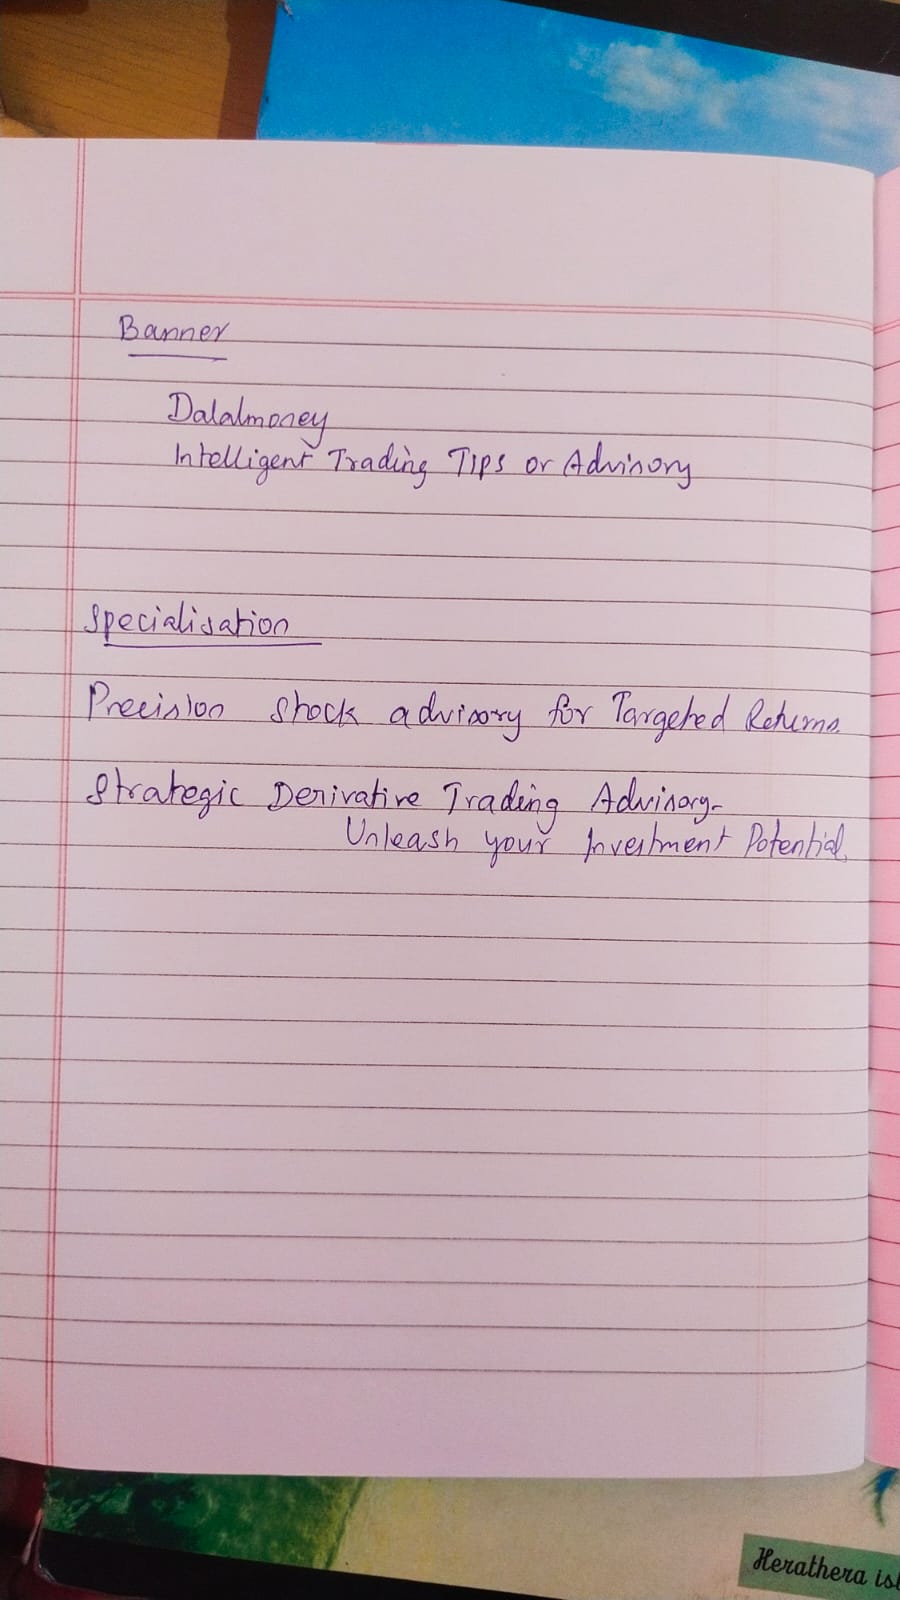 Banner
Dalalmoney
Intelligent Trading Tips or Advisory
Specialisation
Precision Stock advisory for Targeted Returns.
Strategic Derivative Trading Advisory-
Unleash your Investment Potential.
Herathera isl